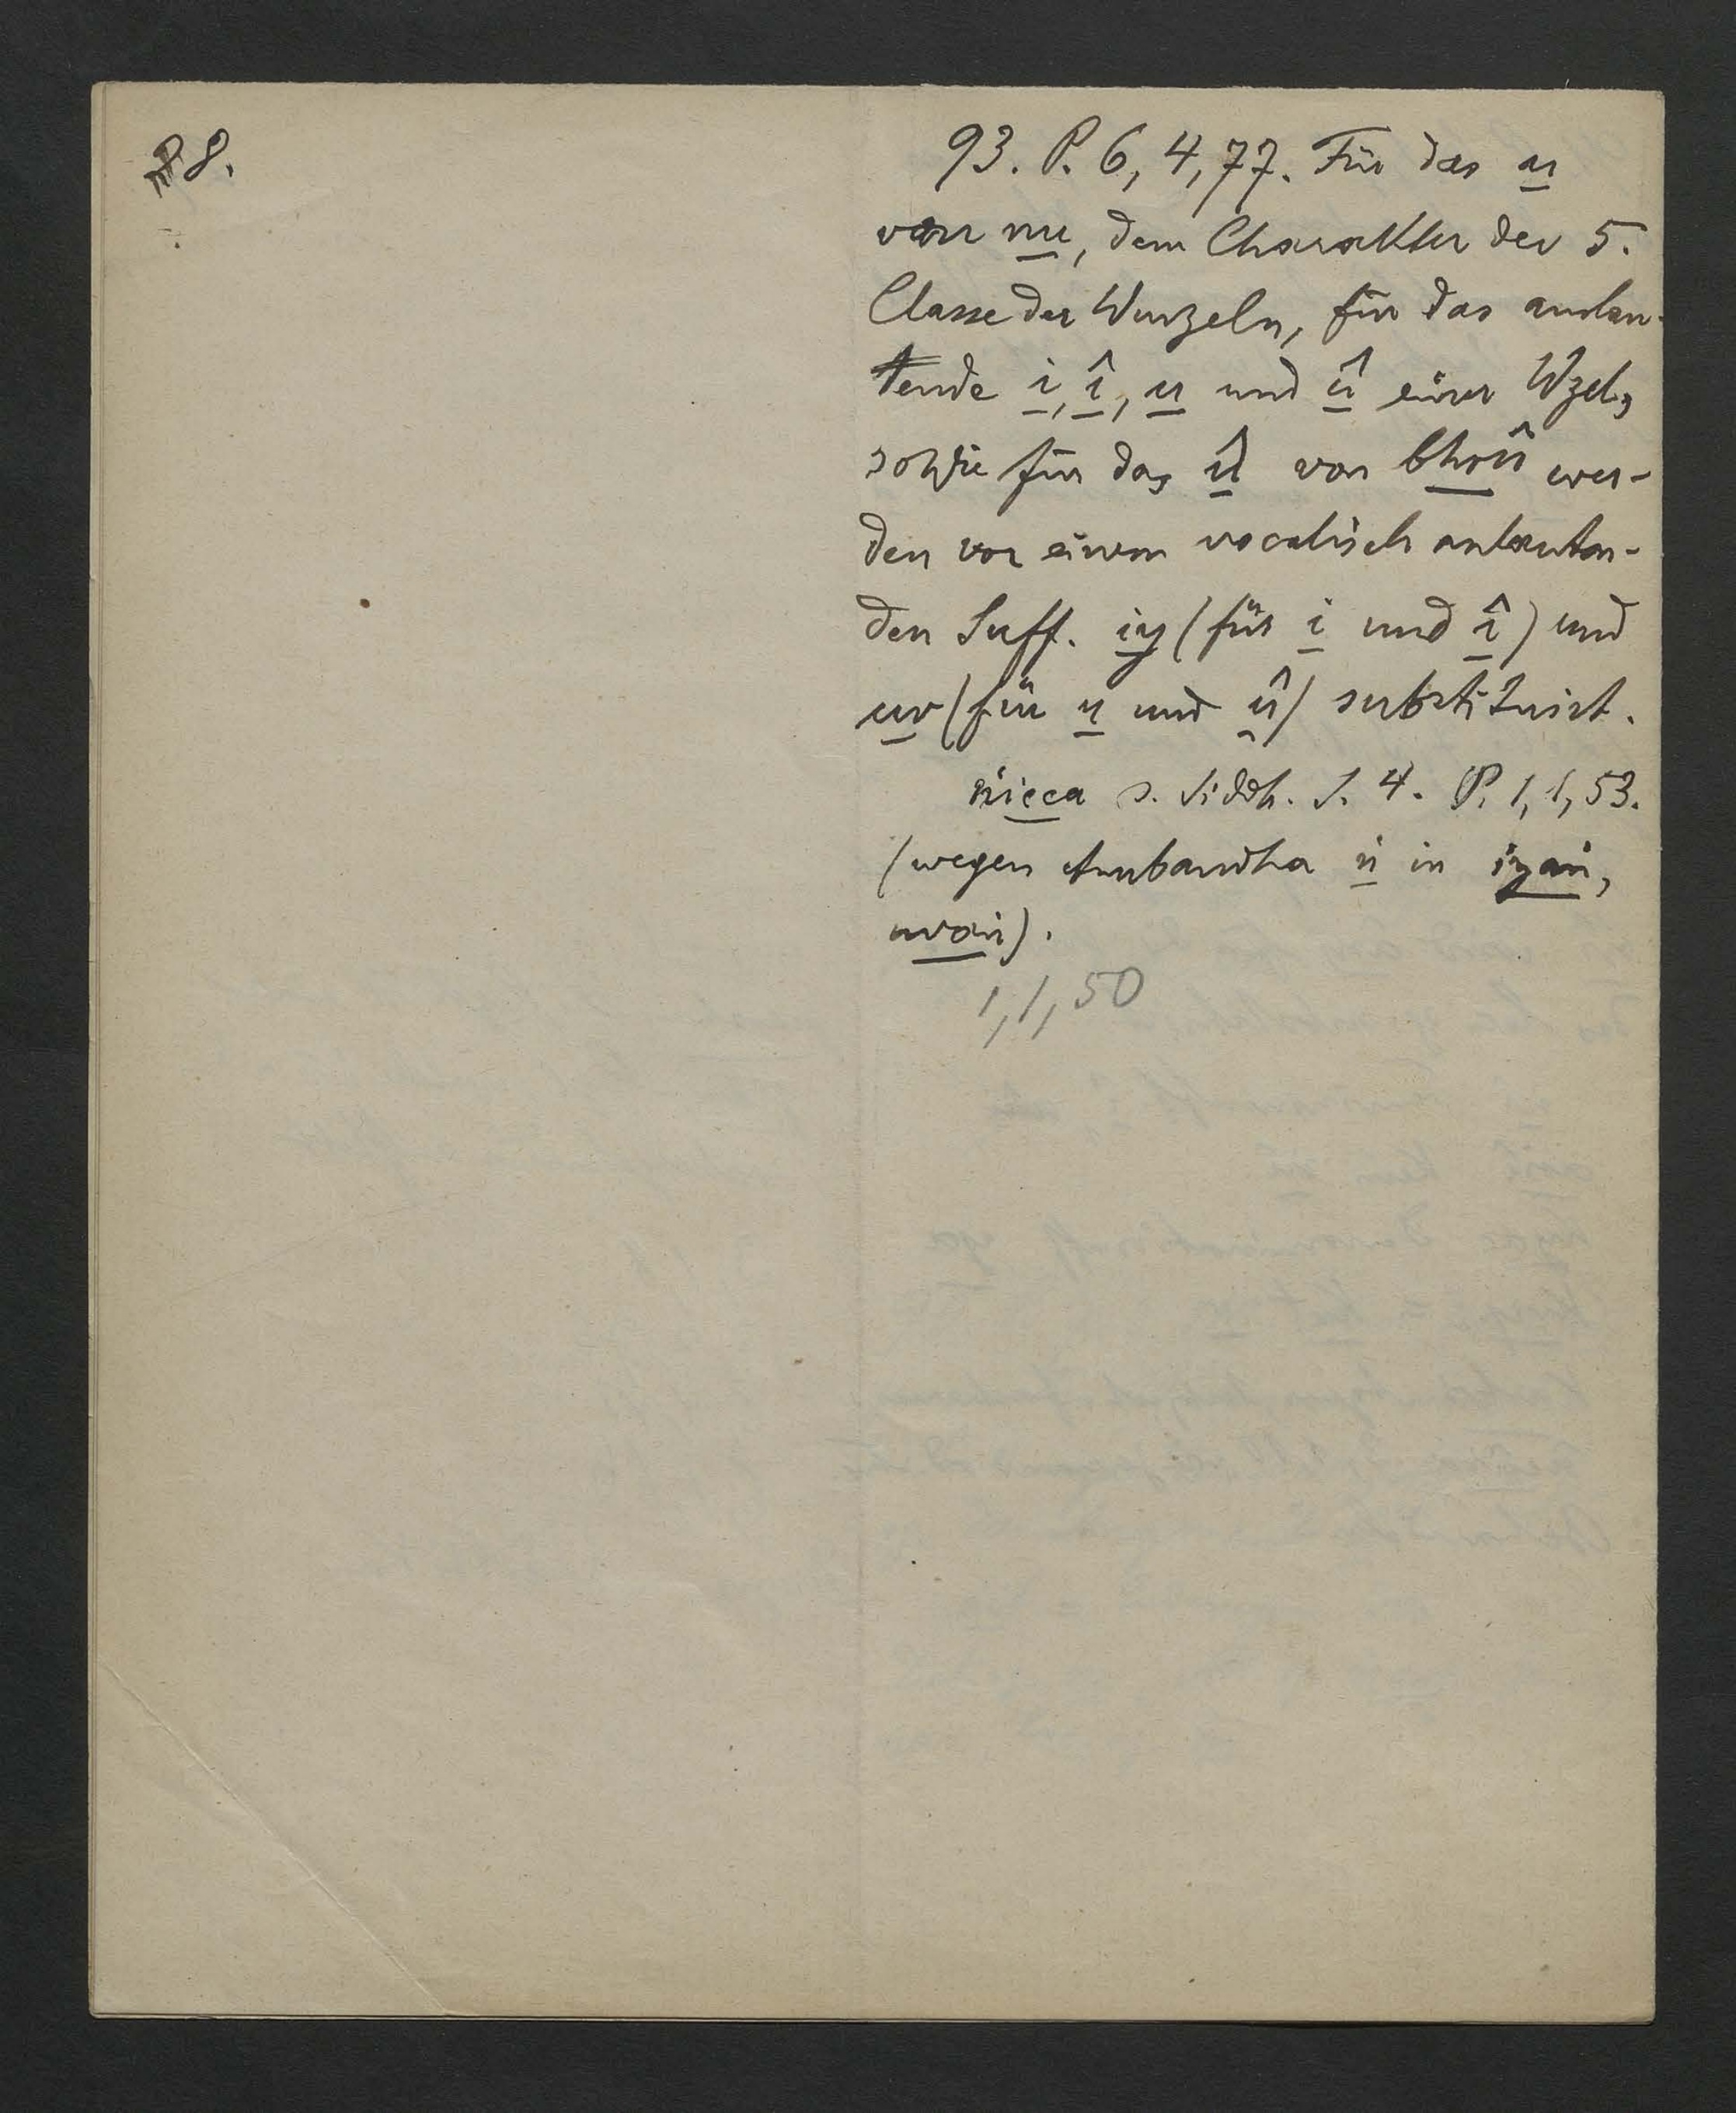 8.
93. P. 6, 4, 77. Für das u
von nu, dem Charakter der 5.
Classe der Wurzeln, für das auslau-
tende i, î, u und û einer Wzel,
sowie für das û von bhrû wer-
den vor einem vocalisch anlauten-
den Suff. iy (für i und î) und
uv (für u und û) substituirt.
ṅicca s. Siddh. S. 4. P. 1, 1, 53.
(wegen Anubandha ṅ in iyaṅ,
uvaṅ).
1, 1, 50